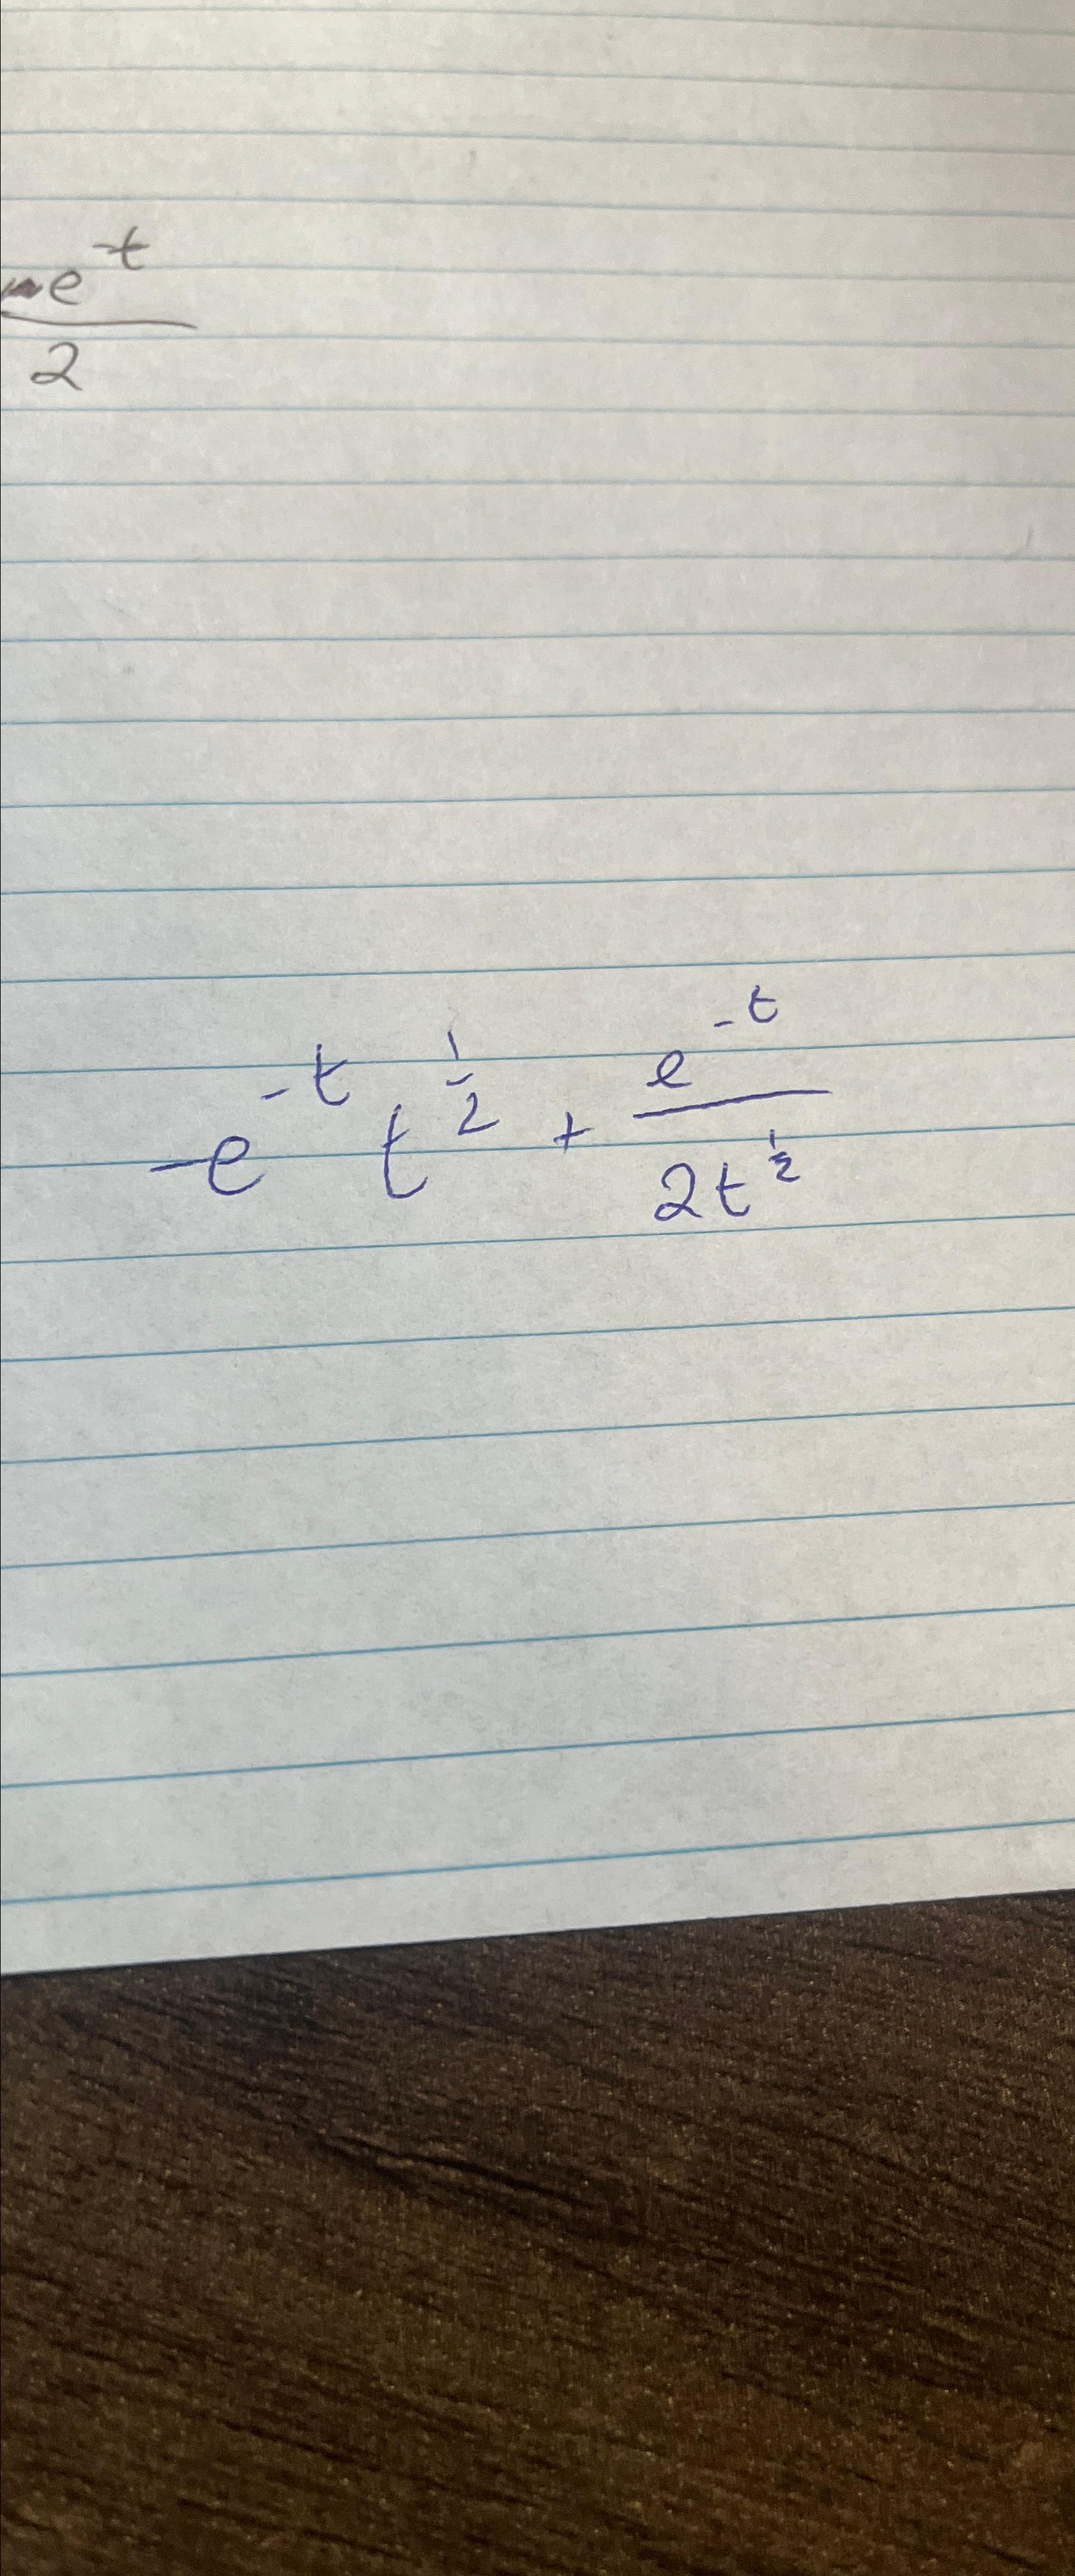 e^-t
2
-e^-t t^1/2 + e^-t / 2t^1/2